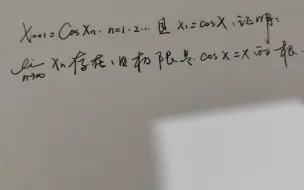 Xn+1 = Cos Xn. n=1.2... 且 x1 = cosX, 证明:
lim n→∞ Xn 存在, 且极限是 cosX=X 的根.